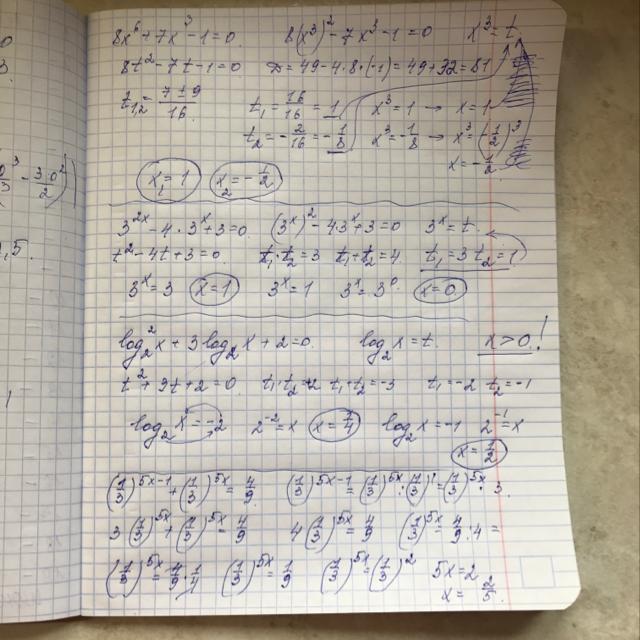 8x⁶+7x³-1=0. 8(x³)²-7x³-1=0 x³=t.
8t²-7t-1=0 D=49-4·8·(-1)=49+32=81
t₁,₂=(7±9)/16 t₁=16/16=1 x³=1 → x=1
t₂=-2/16=-1/8 x³=-1/8 → x³=(-1/2)³
x=-1/2
x₁=1 x₂=-1/2
3²ˣ-4·3ˣ+3=0. (3ˣ)²-4·3ˣ+3=0 3ˣ=t.
t²-4t+3=0 t₁·t₂=3 t₁+t₂=4 t₁=3 t₂=1
3ˣ=3 x=1 3ˣ=1 3ˣ=3⁰ x=0
log₂²x+3log₂x+2=0 log₂x=t. x>0!
t²+9t+2=0. t₁·t₂=2 t₁+t₂=-3 t₁=-2 t₂=-1
log₂x=-2 2⁻²=x x=1/4 log₂x=-1 2⁻¹=x
x=1/2
(1/3)⁵ˣ⁻¹+(1/3)⁵ˣ=4/9 (1/3)⁵ˣ⁻¹=(1/3)⁵ˣ:(1/3)¹=(1/3)⁵ˣ·3
3(1/3)⁵ˣ+(1/3)⁵ˣ=4/9 4(1/3)⁵ˣ=4/9 (1/3)⁵ˣ=4/9:4=
(1/3)⁵ˣ=4/9·1/4 (1/3)⁵ˣ=1/9 (1/3)⁵ˣ=(1/3)² 5x=2
x=2/5